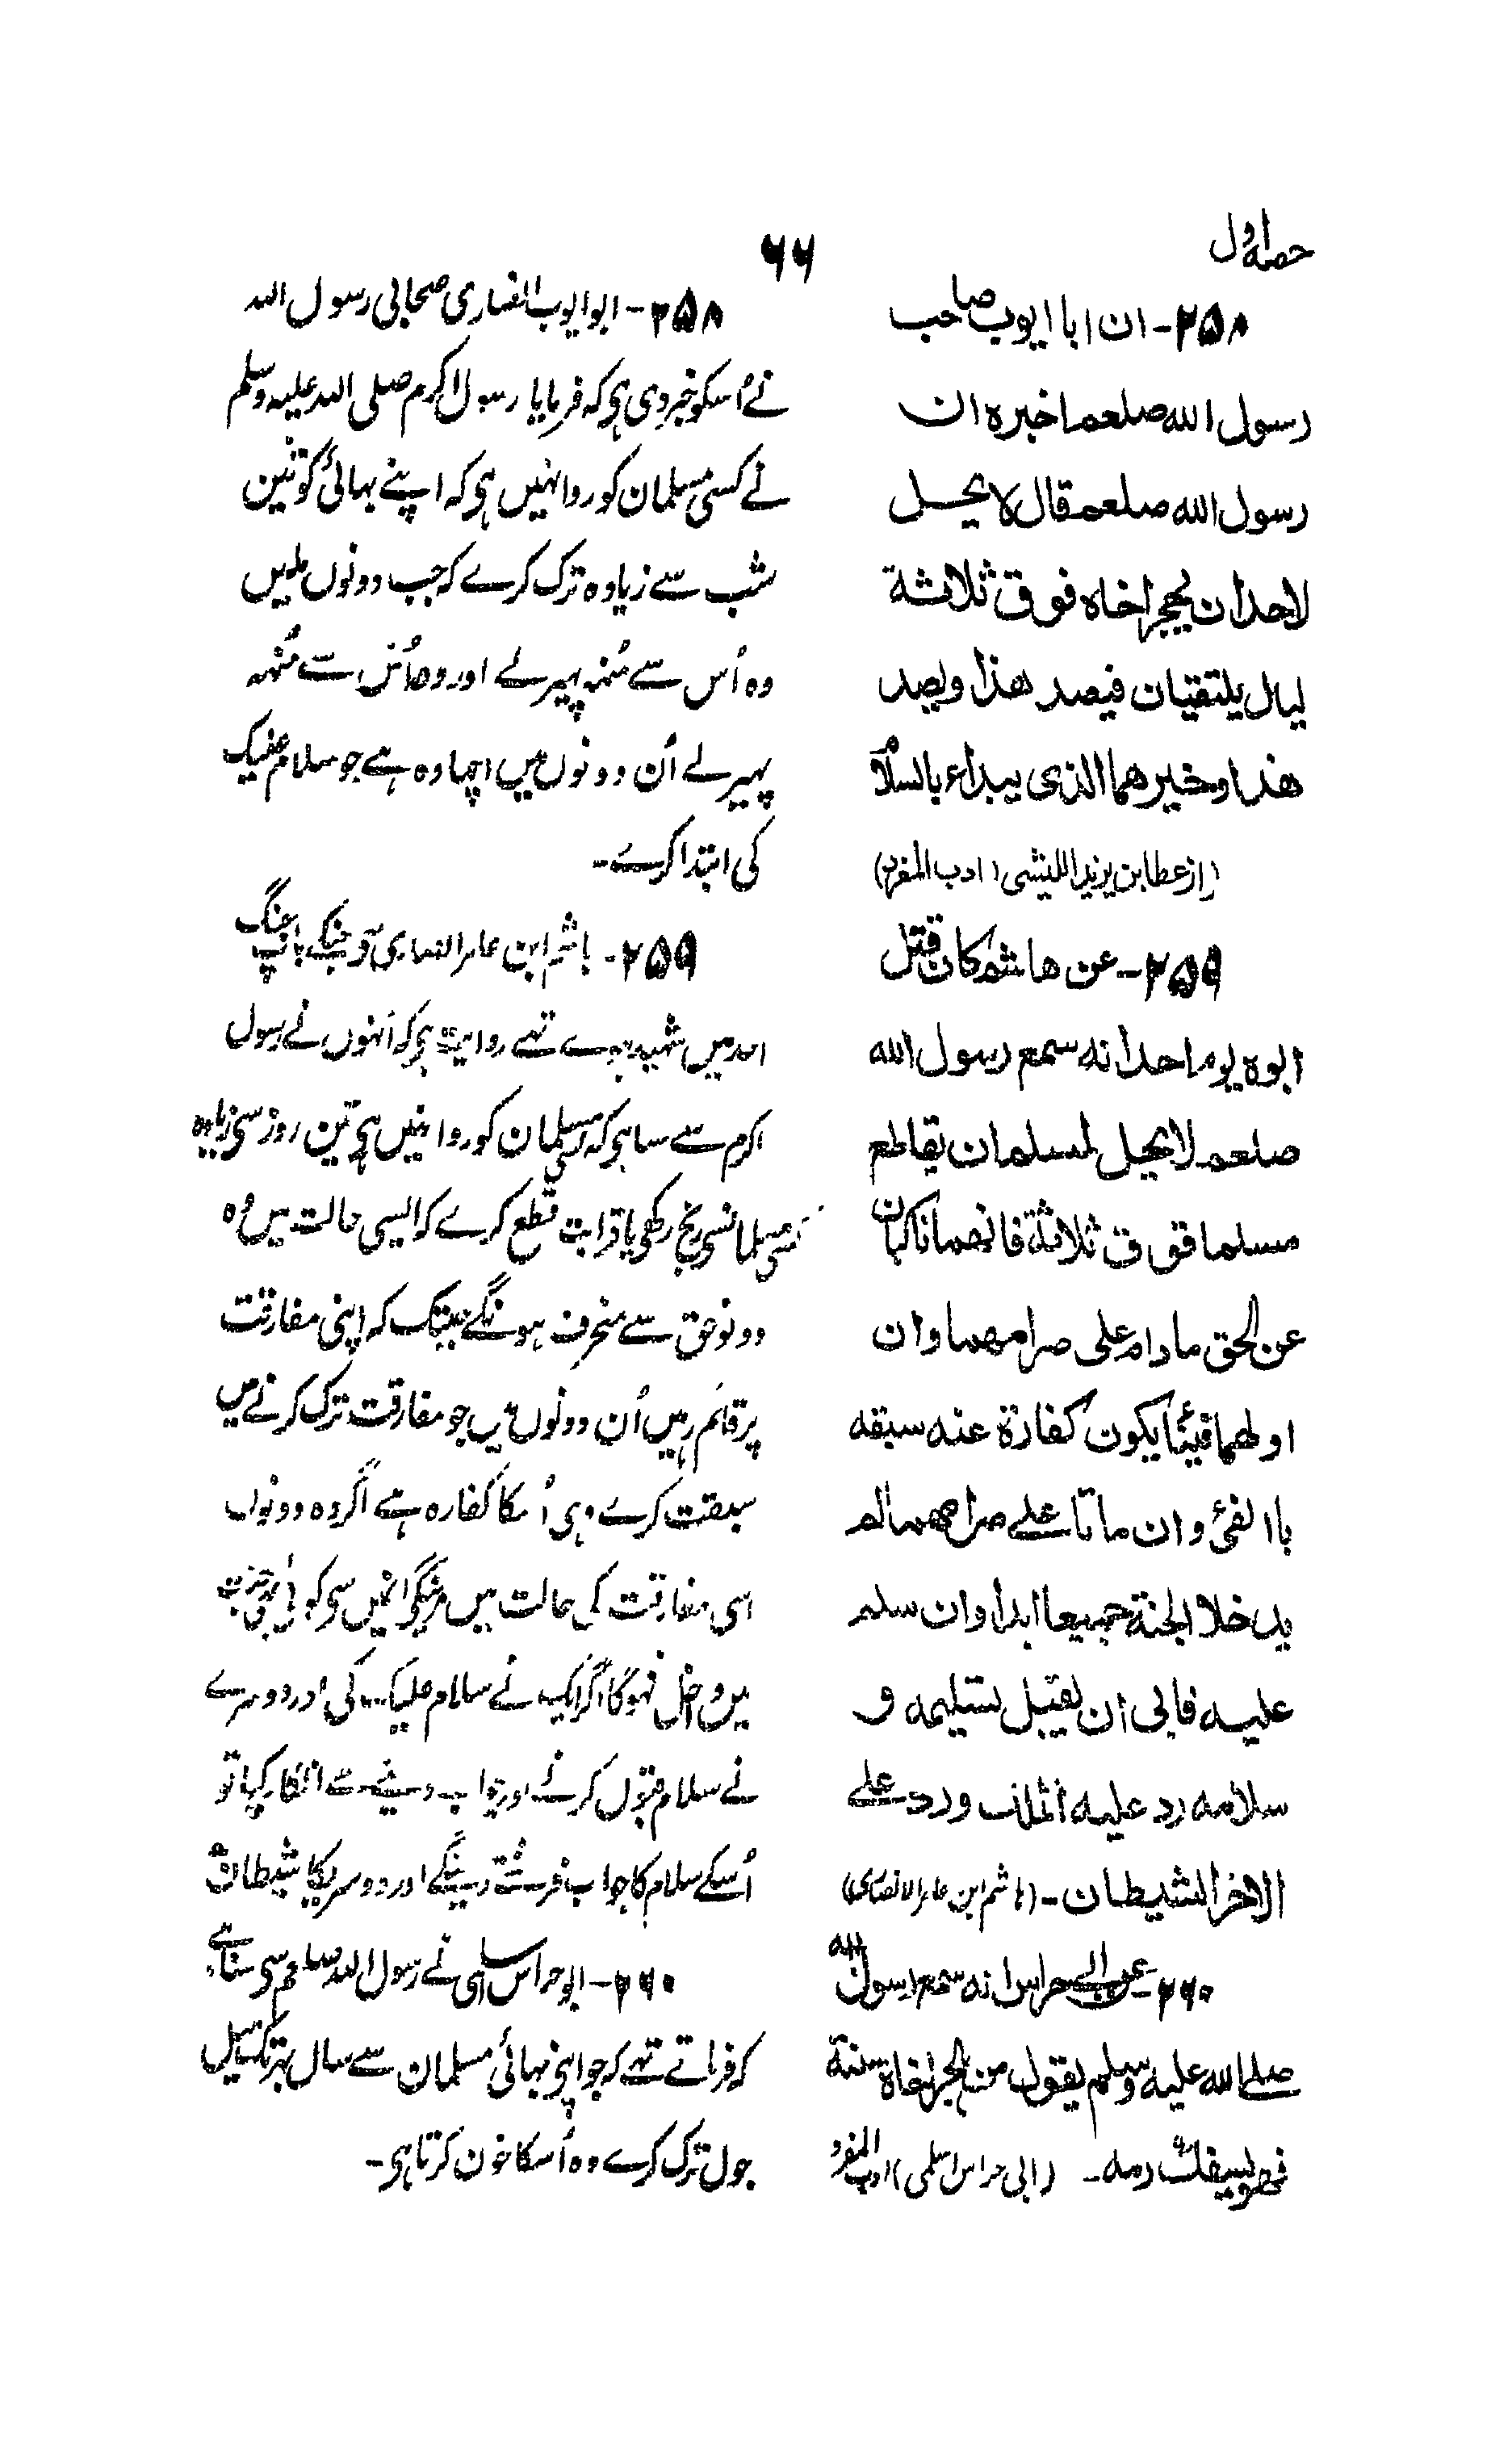 حصہ اول
۶۶
۲۵۸- ان ابا ایوب صاحب
رسول الله صلعم اخبره ان
رسول الله صلعم قال لا یحل
لاحد ان یهجر اخاه فوق ثلاثة
لیال یلتقیان فیصد هذا ویصد
هذا وخیرهما الذی یبداء بالسلام
(از عطا بن یزید اللیثی (ادب المفرد)
۲۵۹- عن هاشم کان قتل
ابوه یوم احد انه سمع رسول الله
صلعم لا یحل لمسلم ان یقاطع
مسلما فوق ثلاثة فانهما ناکبان
عن الحق ما دام علی صرامهما وان
اولهما فیئا یکون کفارة عنه سبقه
باالفئ وان ماتا علے صرامهما لم
یدخلا الجنة جمیعا ابدا وان سلم
علیه فابی ان یقبل تسلیمه و
سلامه رد علیه الملک ورد علے
الاخر الشیطان- (ہاشم ابن عامر الانصاری)
۲۶۰- عن ابی حراس انه سمع رسول الله
صلے الله علیه وسلم یقول من هجر اخاه سنة
فهو یسفک دمه- (ابی حراس اسلمی) ادب المفرد
۲۵۸- ابو ایوب انصاری صحابی رسول اللہ
نے اُسکو خبر دی ہی کہ فرمایا رسول اکرم صلی اللہ علیہ وسلم
نے کسی مسلمان کو روا نہیں ہی کہ اپنے بہائی کو تین
شب سے زیادہ ترک کرے کہ جب دونوں ملیں
وہ اُس سے مُنہ پہیر لے اور وہ اُس سے مُنہہ
پہیر لے اُن دونوں میں اچہا وہ ہے جو سلام علیک
کی ابتدا کرے-
۲۵۹- ہاشم ابن عامر انصاری جنکے باپ جنگ
احد میں شہید ہوے تہے روایت ہی کہ اُنہوں نے رسول
اکرم سے سنا ہی کہ کسی مسلمان کو روا نہیں ہی تین روز سی زیادہ
کسی مسلمانسی رنج رکھی یا قرابت قطع کرے کہ ایسی حالت میں وُہ
دونو حق سے منحرف ہونگے جبتک کہ اپنی مفارقت
پر قائم رہیں اُن دونوں میں جو مفارقت ترک کرنے میں
سبقت کرے وہی اُسکا کفارہ ہے اگر وہ دونوں
اسی مفارقت کی حالت میں مرینگے انمیں سی کوئی جنت
میں داخل نہوگا اگر ایک نے سلام علیک کی اور دوسرے
نے سلام قبول کرنے اور جواب دینے سے انکار کیا تو
اُسکے سلام کا جواب فرشتے دینگے اور دوسریکا شیطان
۲۶۰- ابو حراس اسلمی نے رسول اللہ صلعم سی سنا ہے
کہ فرماتے تہے کہ جو اپنی بہائی مسلمان سے سال بہر تک میل
جول ترک کرے وہ اُسکا خون کرتا ہی-